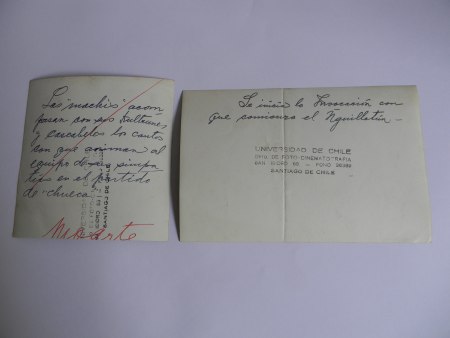 Las machis acom
pasan con sus Kultrunes
y cascabeles los cantos
con que animan al
equipo de sus simpa
tías en el partido
de "chueca"
SANTIAGO DE CHILE
Se inicia la Invocación con
que comienza el Nguillatún –
UNIVERSIDAD DE CHILE
DPTO. DE FOTO-CINEMATOGRAFIA
SAN ISIDRO 85 – FONO
SANTIAGO DE CHILE